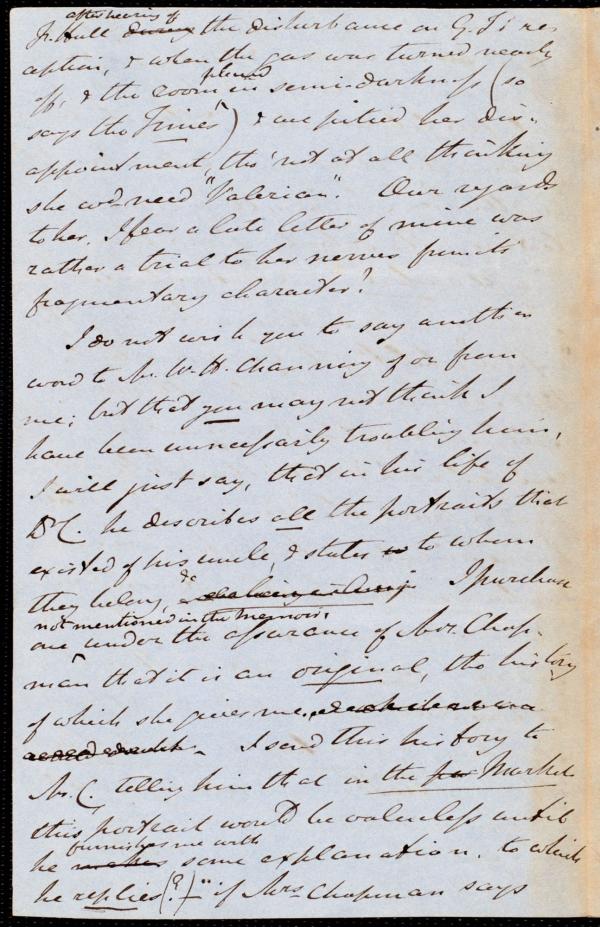 after hearing of
Jr. Hull the disturbance on G. T's re-
ception, & when the gas was turned nearly
off, & the room placed in semi-darkness (so
says the Times) & we pitied her dis-
appointment, tho' not at all thinking
she wd need "Valerian". Our regards
to her. I fear a late letter of mine was
rather a trial to her nerves from its
fragmentary character?
I do not wish you to say another
word to Mr. W. H. Channing of or from
me; but that you may not think I
have been unnecessarily troubling him,
I will just say, that in his life of
Dr C. he describes all the portraits that
existed of his uncle, & states to whom
they belong, &c I purchase
not mentioned in the memoir,
one under the assurance of Mrs. Chap-
man that it is an original, the history
of which she gives me.
I send this history to
Mr. C, telling him that in the Market
this portrait would be valueless until
furnishes me with
he some explanation. to which
he replies (?) - "if Mrs Chapman says